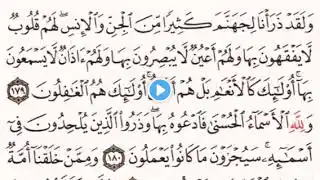 وَلَقَدْ ذَرَأْنَا لِجَهَنَّمَ كَثِيرًا مِّنَ ٱلْجِنِّ وَٱلْإِنسِ ۖ لَهُمْ قُلُوبٌ
لَّا يَفْقَهُونَ بِهَا وَلَهُمْ أَعْيُنٌ لَّا يُبْصِرُونَ بِهَا وَلَهُمْ ءَاذَانٌ لَّا يَسْمَعُونَ
بِهَآ ۚ أُو۟لَٰٓئِكَ كَٱلْأَنْعَٰمِ بَلْ هُمْ أُو۟لَٰٓئِكَ هُمُ ٱلْغَٰفِلُونَ ١٧٩
وَلِلَّهِ ٱلْأَسْمَآءُ ٱلْحُسْنَىٰ فَٱدْعُوهُ بِهَا ۖ وَذَرُوا۟ ٱلَّذِينَ يُلْحِدُونَ فِىٓ
أَسْمَٰٓئِهِۦ ۚ سَيُجْزَوْنَ مَا كَانُوا۟ يَعْمَلُونَ ١٨٠ وَمِمَّنْ خَلَقْنَآ أُمَّةٌ